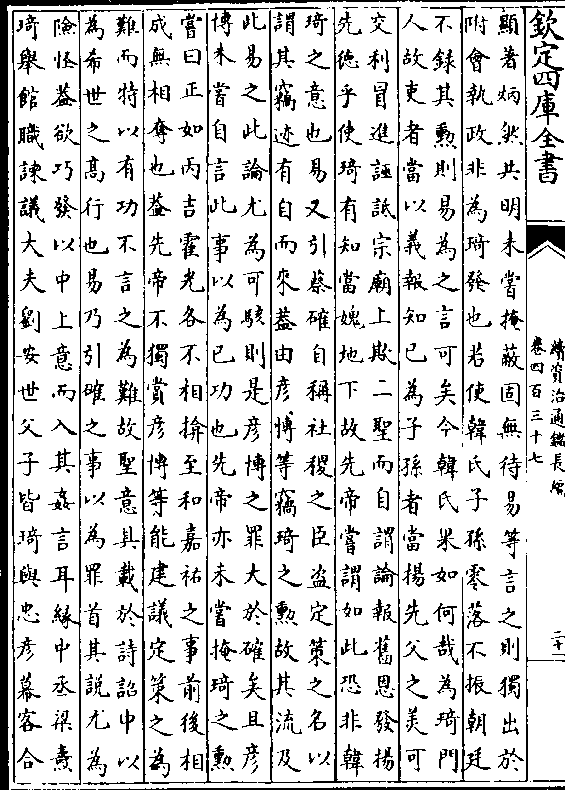 欽定四庫全書
續資治通鑑長編
卷四百三十七
二十
顯著炳然共明未嘗掩蔽固無待易等言之則獨出於
附會執政非為琦發也若使韓氏子孫零落不振朝廷
不錄其勲則易為之言可矣今韓氏果如何哉為琦門
人故吏者當以義報知已為子孫者當揚先父之美可
交利冒進誣詆宗廟上欺二聖而自謂論報舊恩發揚
先徳乎使琦有知當媿地下故先帝嘗謂如此恐非韓
琦之意也易又引蔡確自稱社稷之臣盗定策之名以
謂其竊迹有自而來葢由彦博等竊琦之勲故其流及
此易之此論尤為可駭則是彦博之罪大於確矣且彦
博未嘗自言此事以為已功也先帝亦未嘗掩琦之勲
嘗曰正如丙吉霍光各不相揜至和嘉祐之事前後相
成無相奪也葢先帝不獨賞彦博等能建議定策之為
難而特以有功不言之為難故聖意具載於詩詔中以
為希世之髙行也易乃引確之事以為罪首其說尤為
險怪葢欲巧發以中上意而入其姦言耳緣中丞梁燾
琦舉館職諌議大夫劉安世父子皆琦與忠彦幕客合